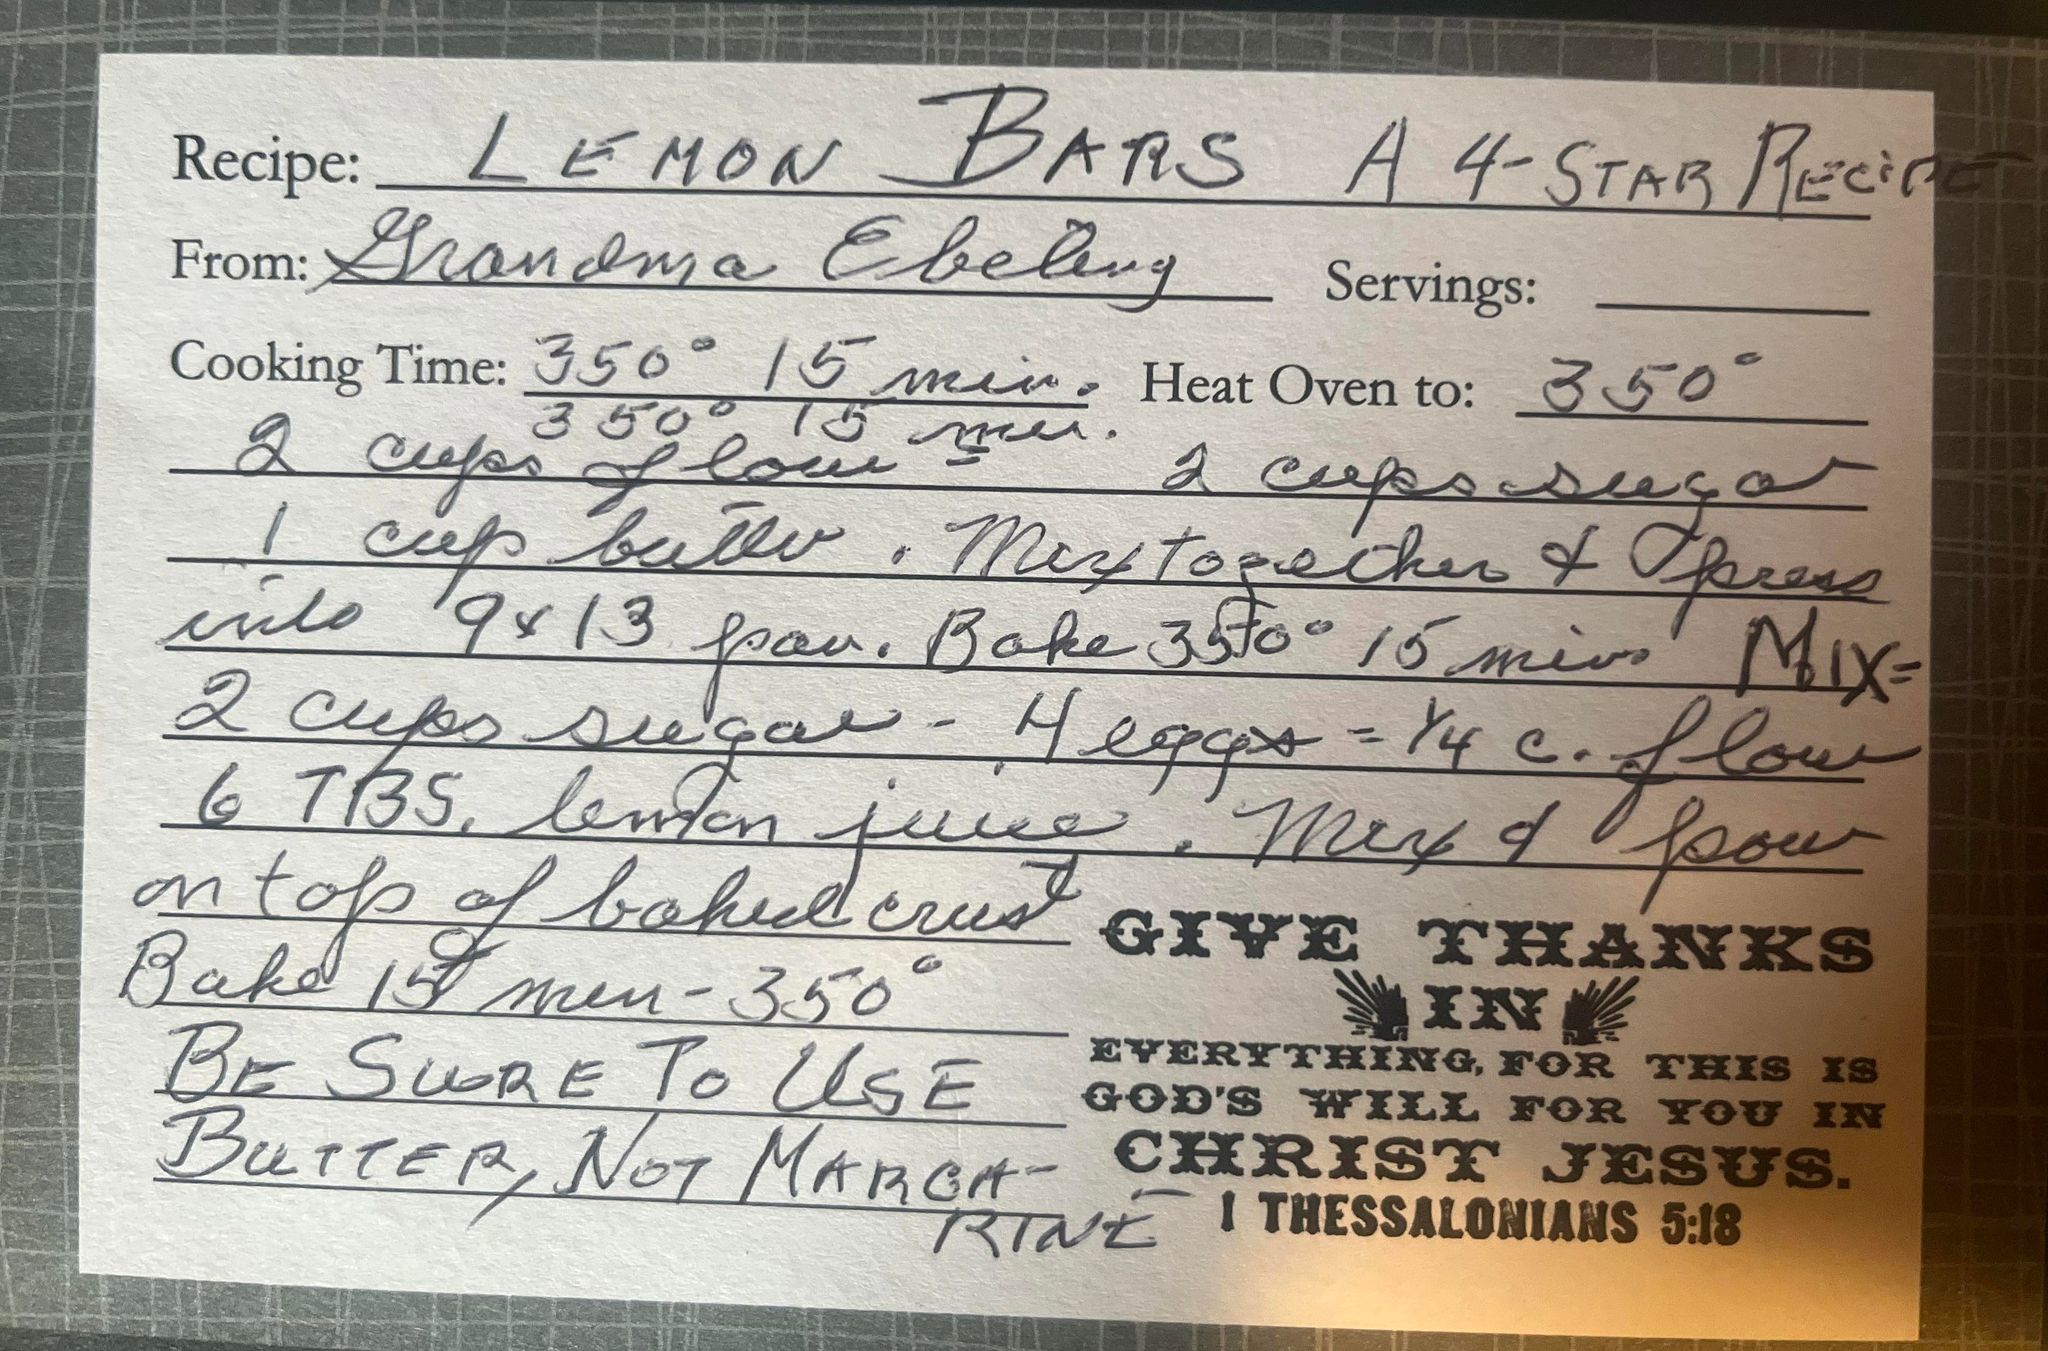 Recipe: LEMON BARS A 4-STAR RECIPE
From: Grandma Ebeling Servings:
Cooking Time: 350° 15 min. Heat Oven to: 350°
350° 15 min.
2 cups flour = 2 cups sugar
1 cup butter. Mix together & press
into 9x13 pan. Bake 350° 15 min. MIX=
2 cups sugar - 4 eggs = 1/4 c. flour
6 TBS. lemon juice. Mix & pour
on top of baked crust
Bake 15 min - 350°
BE SURE TO USE
BUTTER, NOT MARGA-
RINE
GIVE THANKS
IN
EVERYTHING, FOR THIS IS
GOD'S WILL FOR YOU IN
CHRIST JESUS.
1 THESSALONIANS 5:18